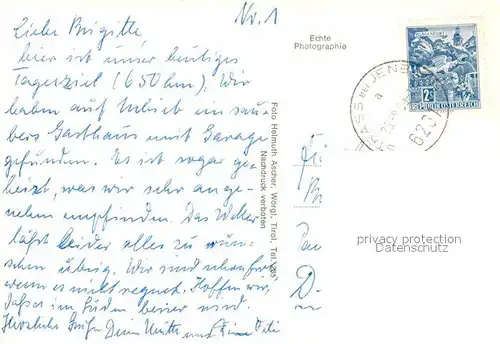 Nr. 1
Liebe Brigitte
hier ist unser heutiges
Tagesziel (650 km). Wir
haben auf Anhieb ein sau
beres Gasthaus mit Garage
gefunden. Es ist sogar ge-
heizt, was wir sehr ange-
nehm empfinden. Das Wetter
läßt leider alles zu wün-
schen übrig. Wir sind schon froh
wenn es nicht regnet. Hoffen wir,
daß es im Süden besser wird.
Herzliche Grüße Deine Mutti und
Echte
Photographie
Foto Helmuth Ascher, Wörgl, Tirol, Tel.
Nachdruck verboten
KUFSTEIN
2S
REPUBLIK ÖSTERREICH
STRASS BEI JEN
a
privacy protection
Datenschutz